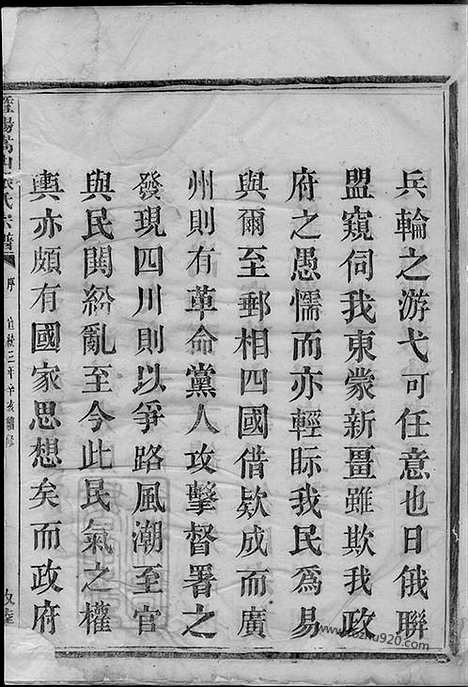 兵輪之游弋可任意也日俄聯
盟窺伺我東蒙新畺雖欺我政
府之愚懦而亦輕眎我民為易
與爾至郵相四國借欵成而廣
州則有革命黨人攻擊督署之
發現四川則以爭路風潮至官
與民鬨紛亂至今此民氣之權
輿亦頗有國家思想矣而政府
氏宗譜
序
宣統三年辛亥續修